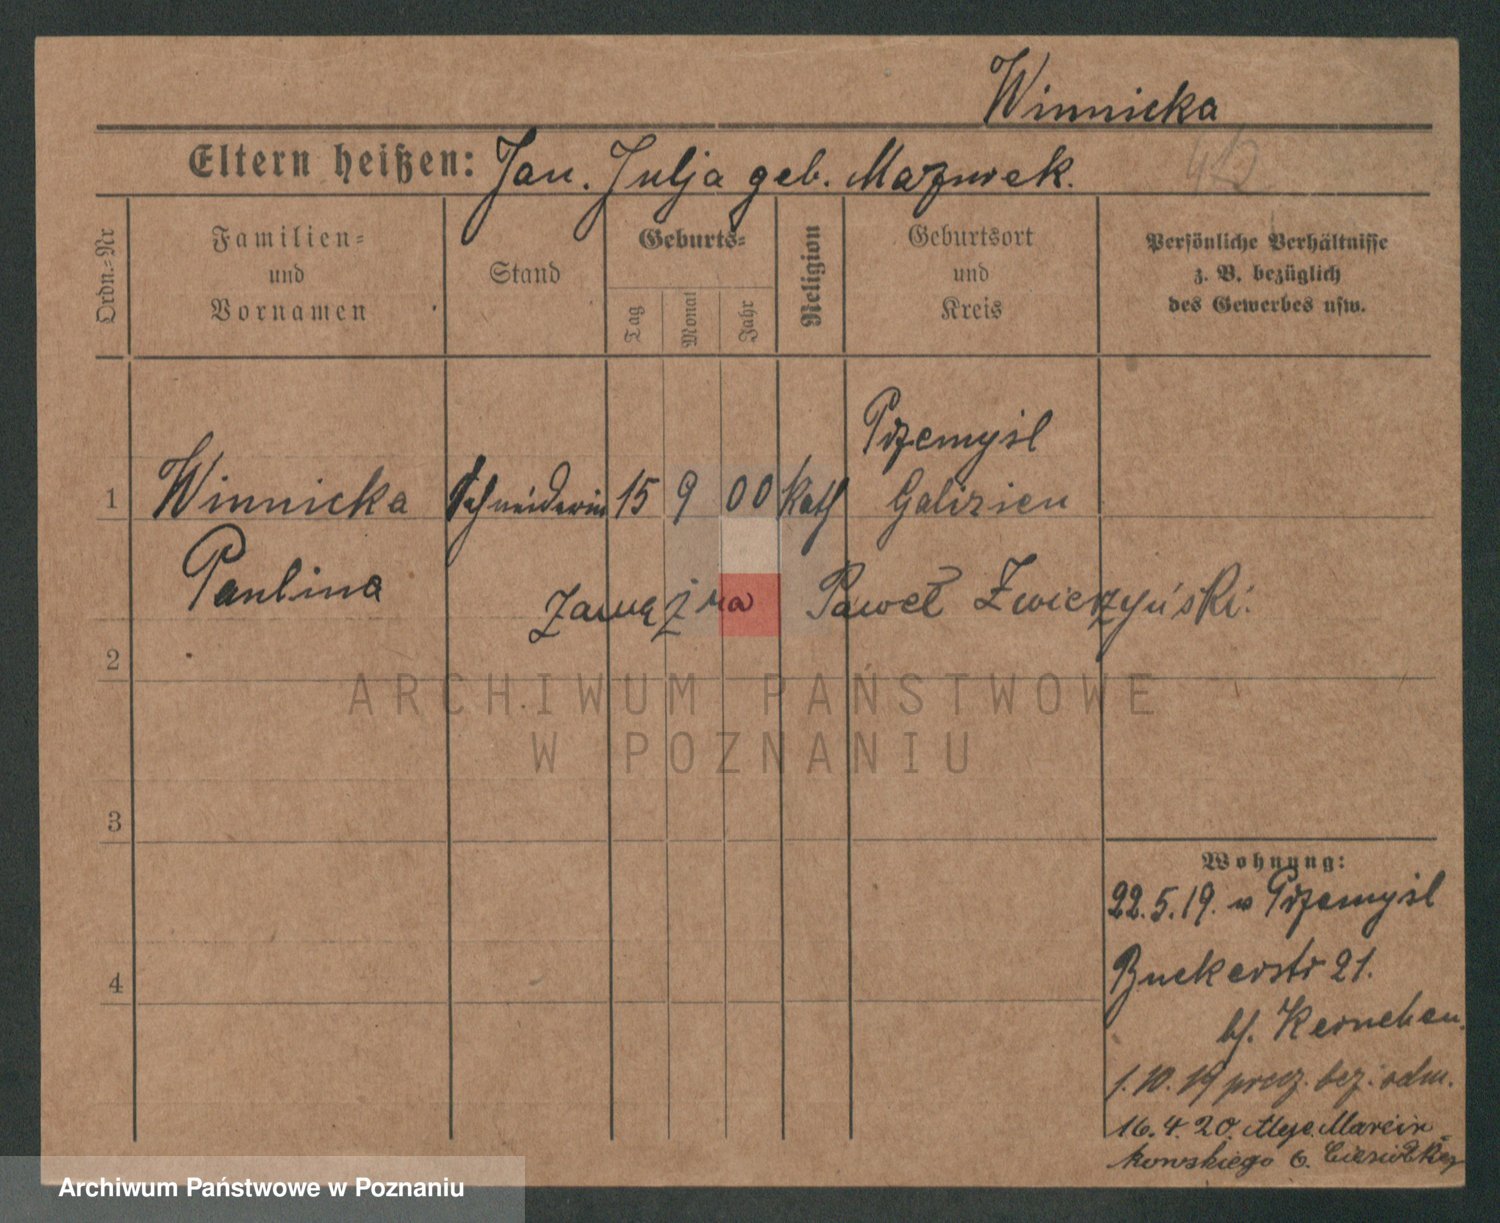 Winnicka
Eltern heißen: Jan. Julja geb. Mazurek.
Ordn.-Nr
Familien- und Vornamen
Stand
Geburts-
Tag
Monat
Jahr
Religion
Geburtsort und Kreis
Persönliche Verhältnisse z. B. bezüglich des Gewerbes usw.
Przemyśl
1 Winnicka Schneiderin 15 9 00 kath Galizien
Paulina
zamężna Paweł Zwierzyński.
2
ARCHIWUM PAŃSTWOWE
W POZNANIU
3
Wohnung:
22.5.19. w Przemyśl
4
Buckerstr 21.
bf. Kernchen.
1.10.19 precz. bez. adm.
16.4.20. Aleje Marcin-
kowskiego 6.
Archiwum Państwowe w Poznaniu